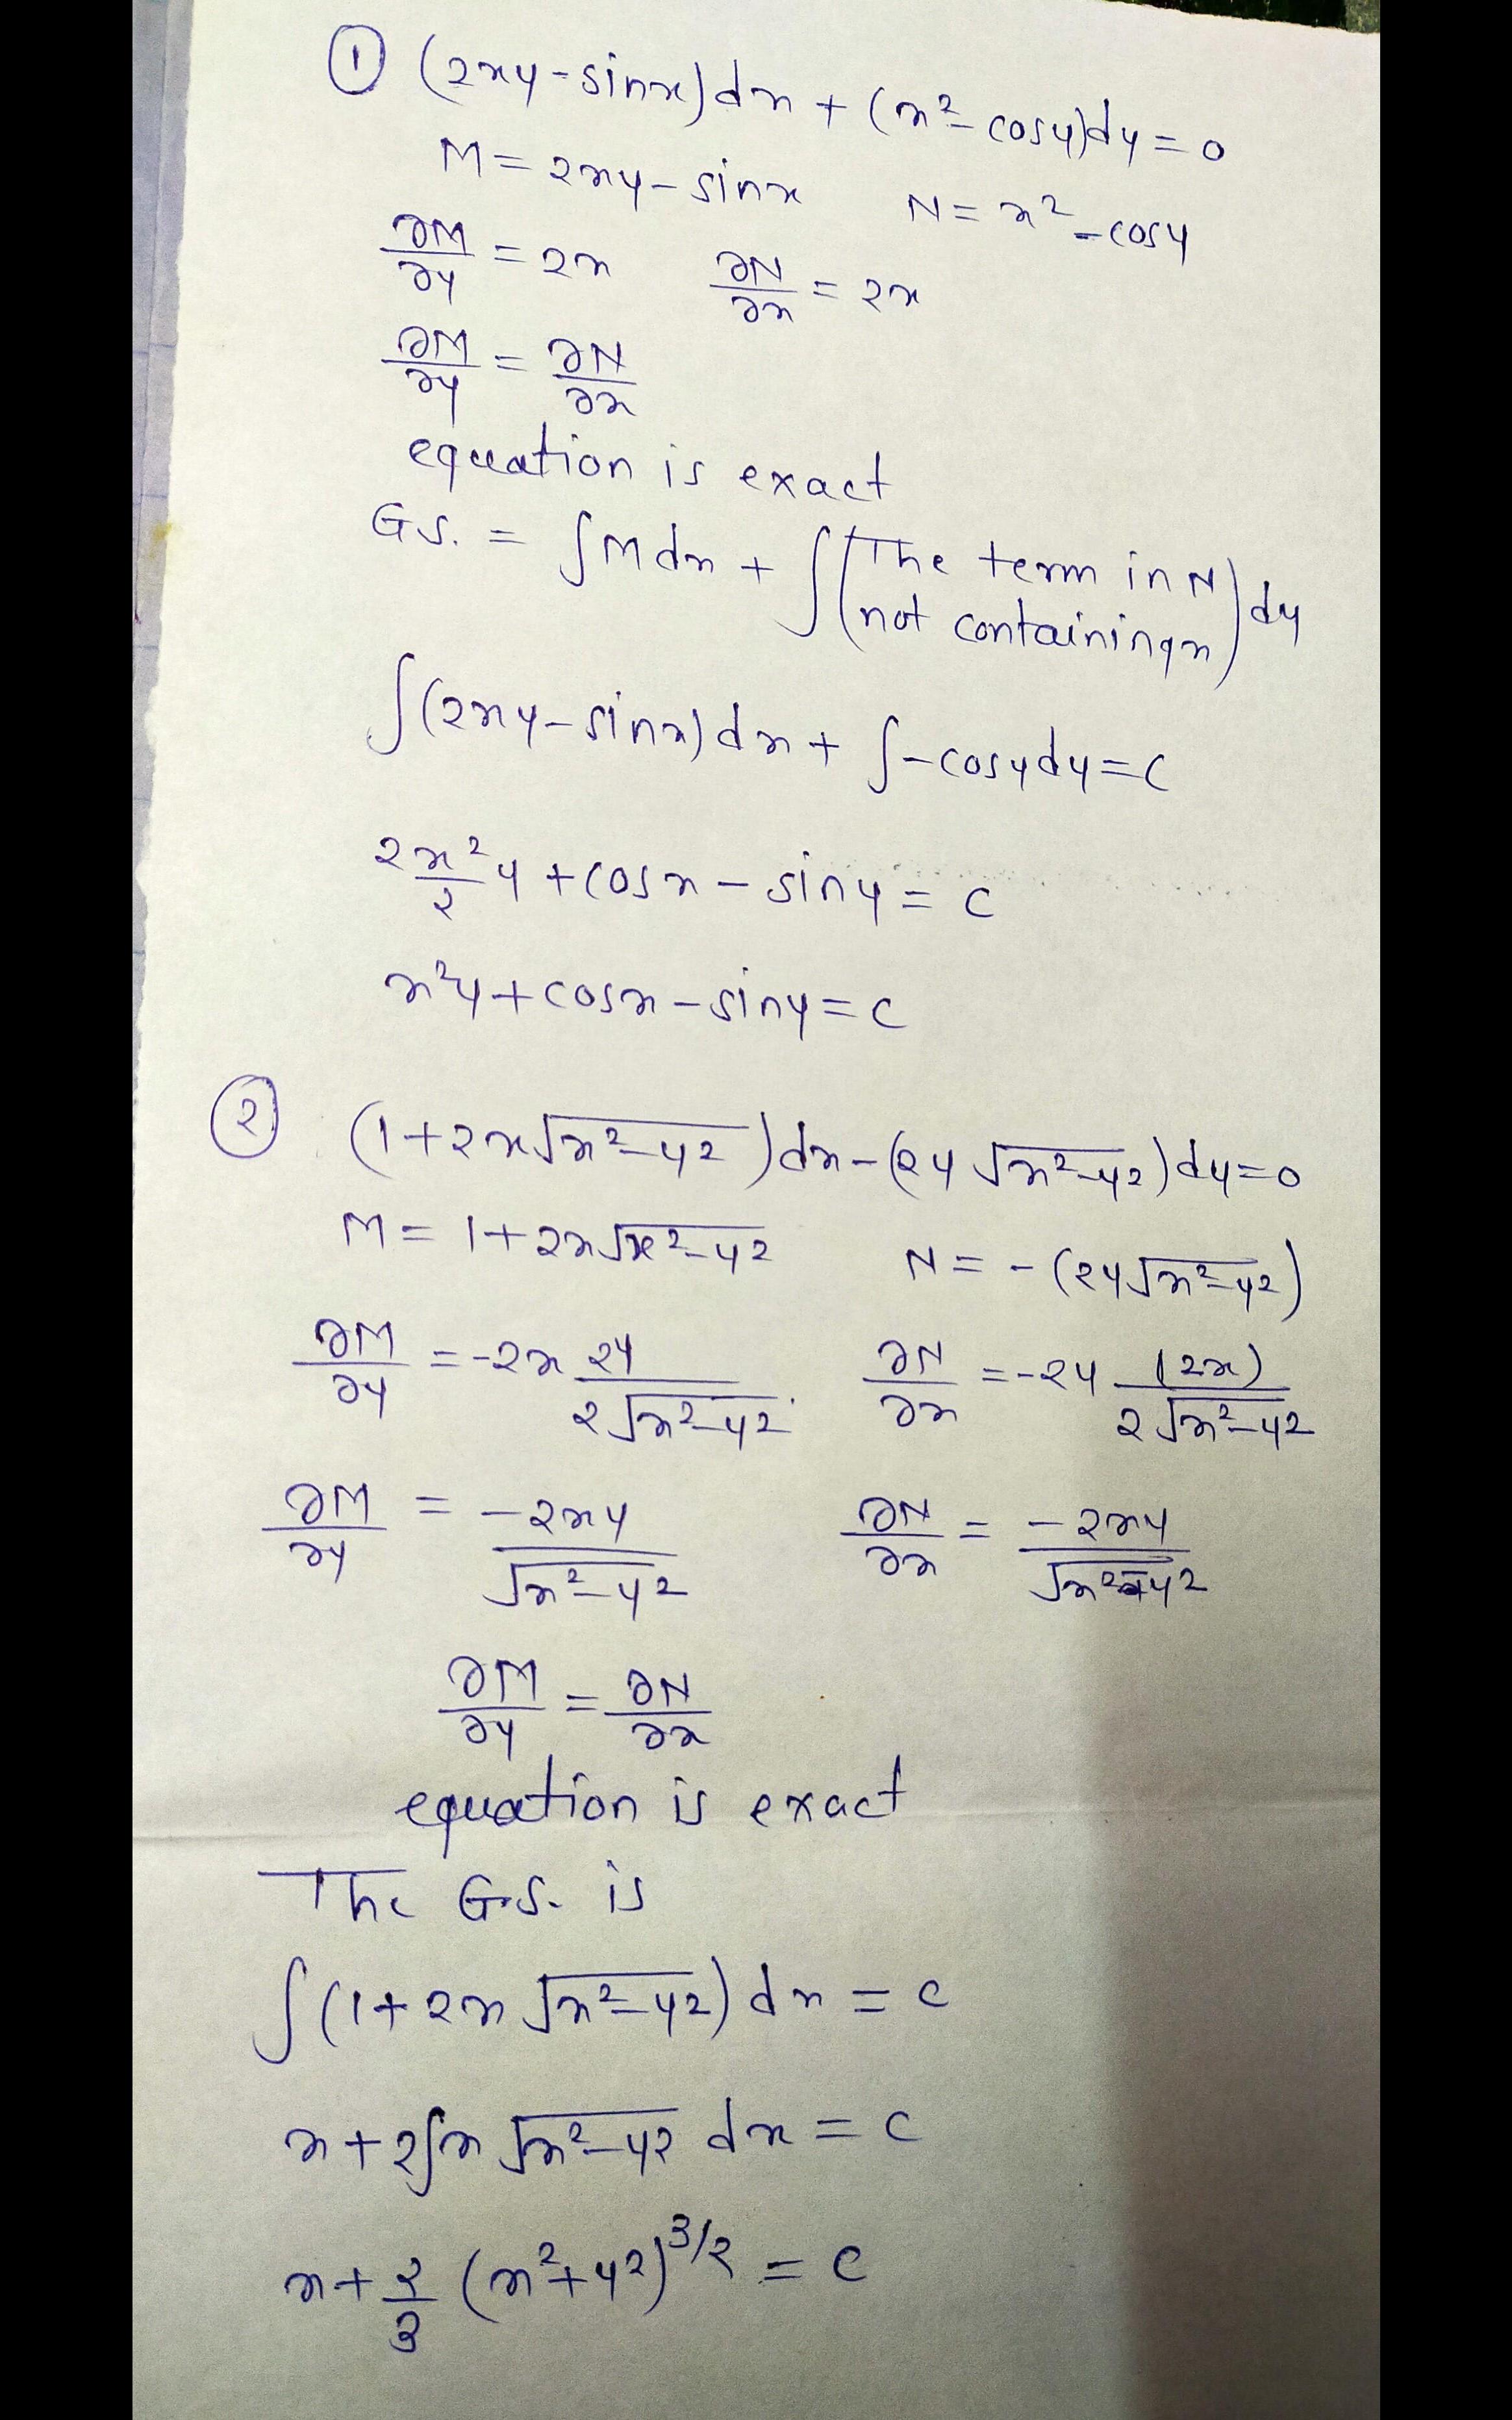 ① (2xy - sinx)dx + (x² - cosy)dy = 0
M = 2xy - sinx N = x² - cosy
∂M/∂y = 2x ∂N/∂x = 2x
∂M/∂y = ∂N/∂x
equation is exact
G.S. = ∫Mdx + ∫(The term in N not containing x)dy
∫(2xy - sinx)dx + ∫-cosydy = c
2x²/2 y + cosx - siny = c
x²y + cosx - siny = c
② (1+2x√(x²-y²))dx - (2y√(x²-y²))dy = 0
M = 1+2x√(x²-y²) N = -(2y√(x²-y²))
∂M/∂y = -2x 2y/(2√(x²-y²)) ∂N/∂x = -2y (2x)/(2√(x²-y²))
∂M/∂y = -2xy/√(x²-y²) ∂N/∂x = -2xy/√(x²-y²)
∂M/∂y = ∂N/∂x
equation is exact
The G.S. is
∫(1+2x√(x²-y²))dx = c
x+2∫x√(x²-y²) dx = c
x+2/3 (x²+y²)^3/2 = c